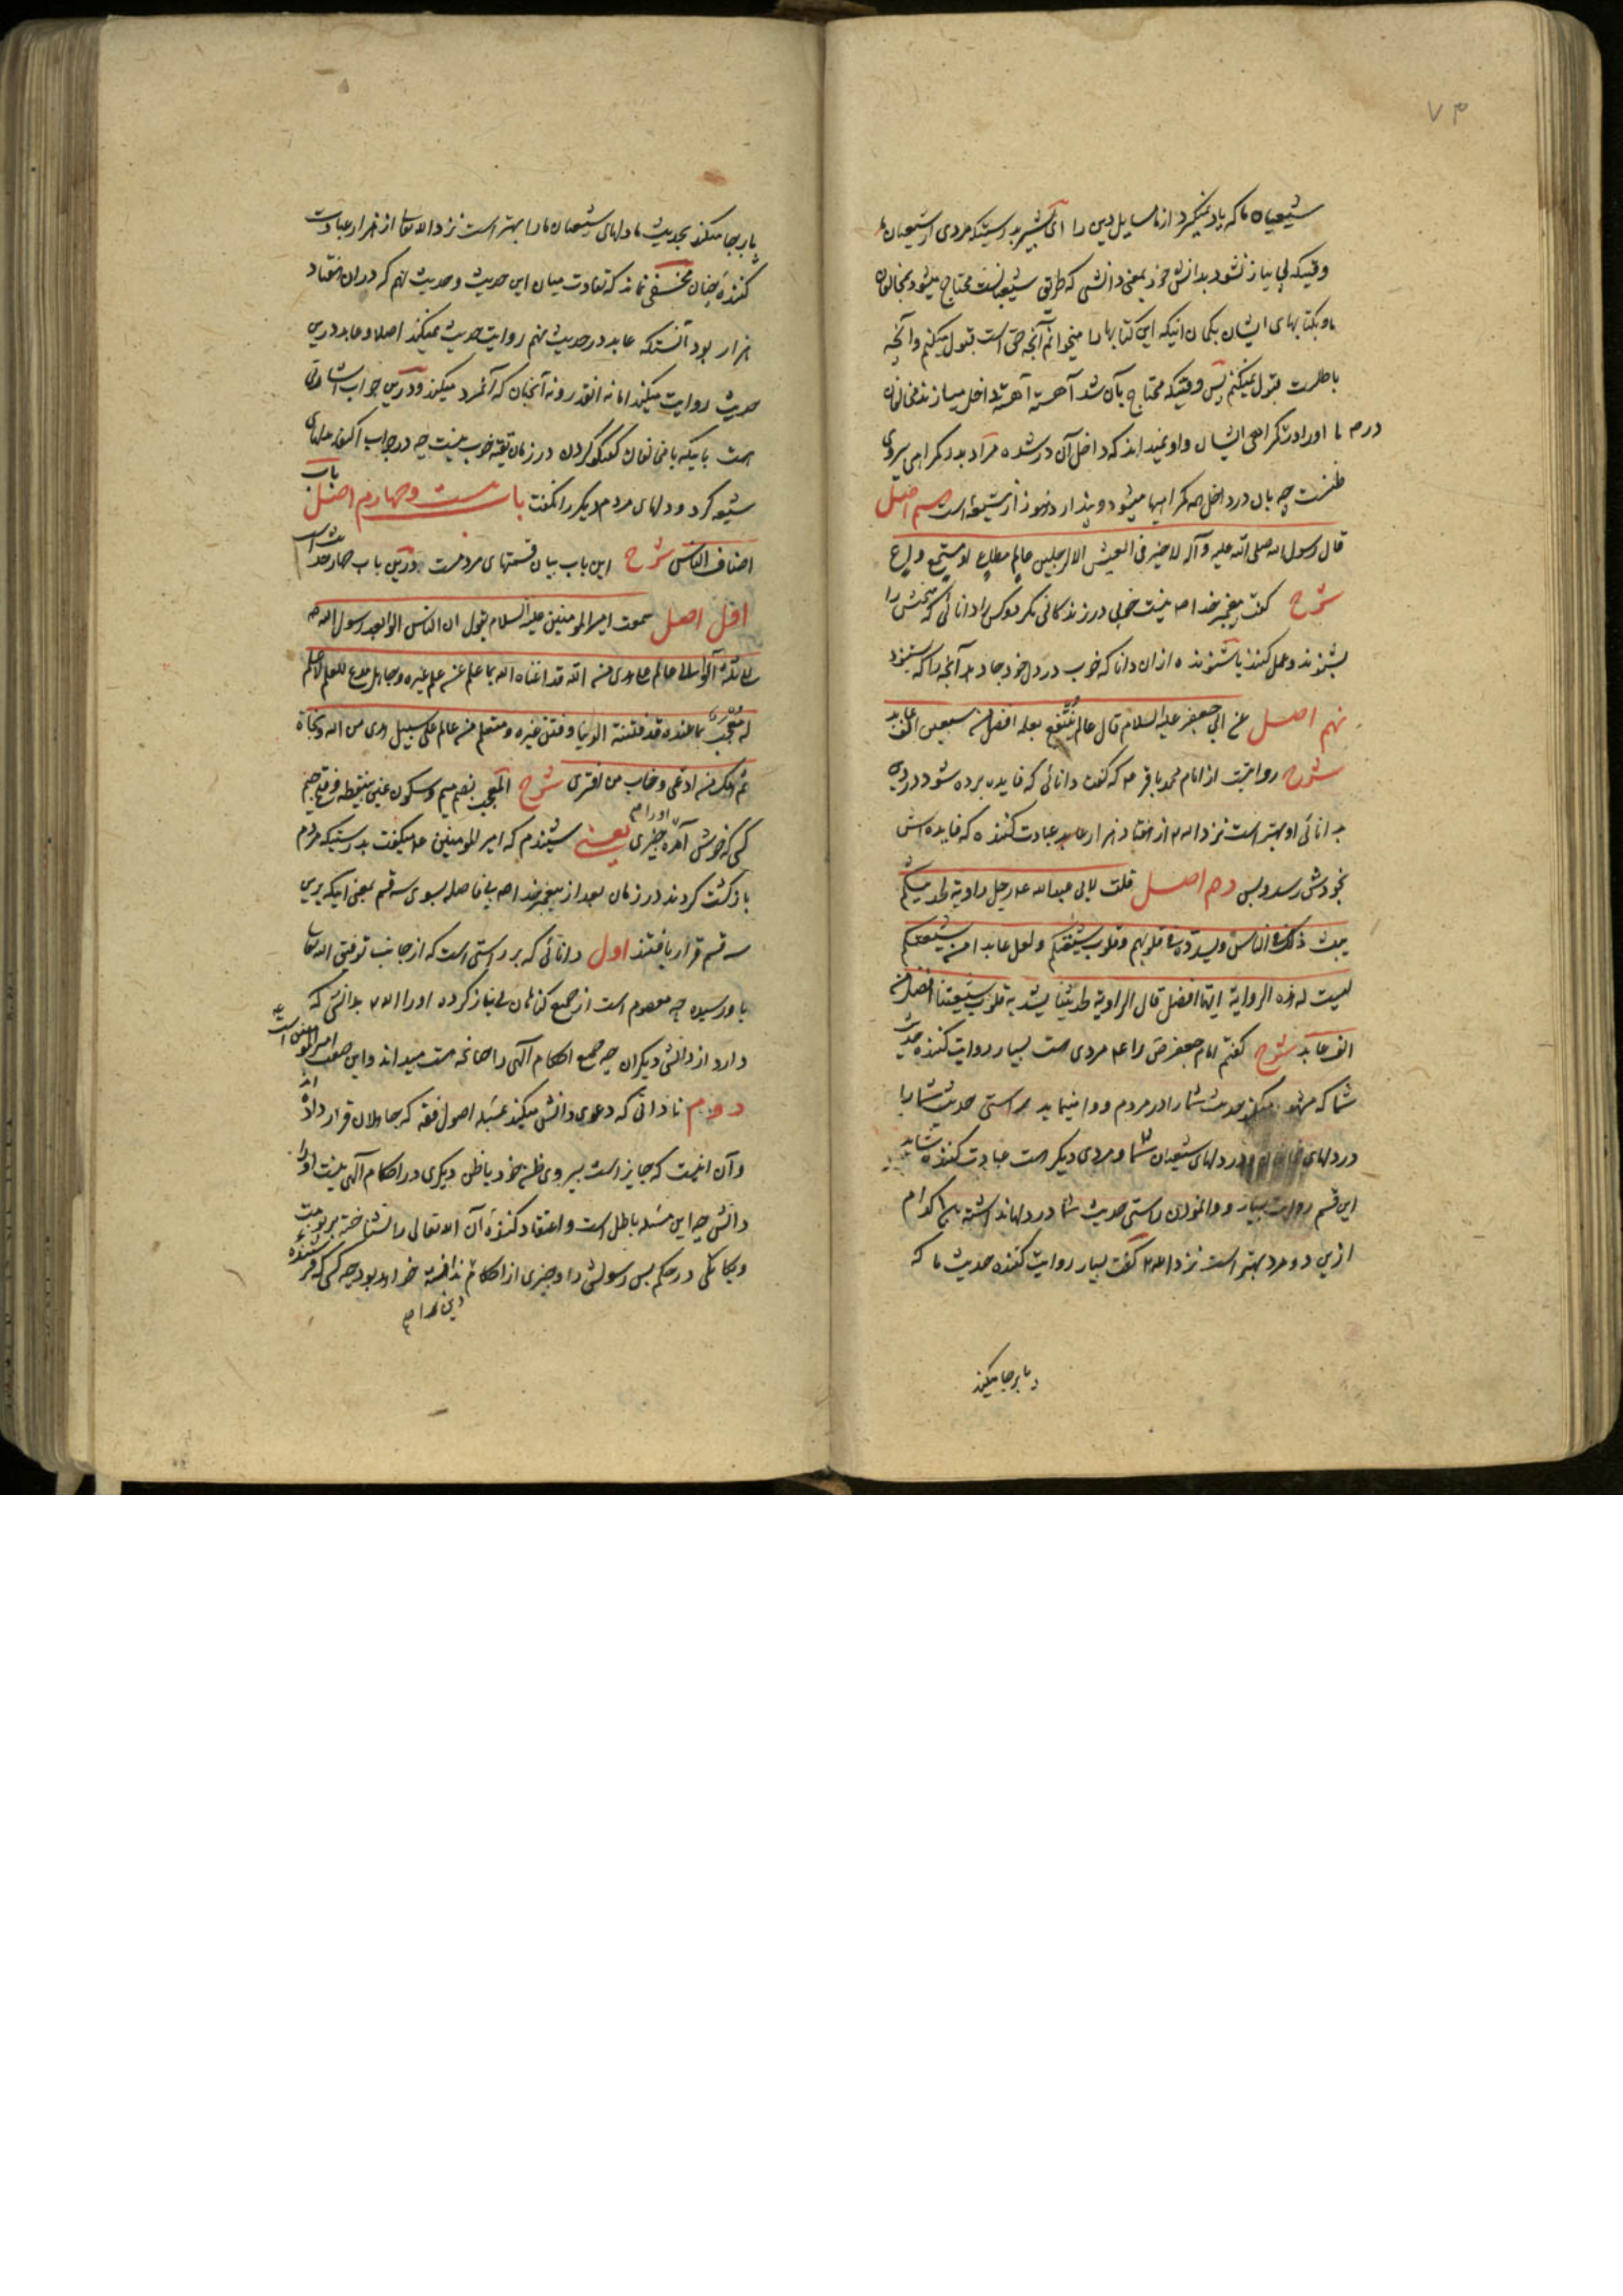 ۷۳
شیعیان ما که یاد نمیگیرد از ما مسایل دین را ای بشیر بدرستیکه مردی از شیعیان ما
وقتیکه بی نیاز نشود بدانش خود بمعنی دانشی که طریق شیعیانست محتاج میشود بمخالفان
ما و بکتابهای ایشان بگمان اینکه این کتابها را میخوانم آنچه حق است قبول میکنم و آنچه
باطلست قبول نمیکنم پس وقتیکه محتاج بآن شد آهسته آهسته داخل میسازند مخالفان
در م ما او را در گمراهی ایشان و او نمیداند که داخل آن در شده مراد بدر گمراهی پیروی
ظنست چه بان در داخل همه گمراهیها میشود و پندارد هنوز از شیعه است هشتم اصل
قال رسول الله صلی الله علیه و آله لا خیر فی العیش الا لرجلین عالم مطاع او مستمع واع
شرح گفت پیغمبر خدا ص نیست خوبی در زندگانی مگر دو کس را دانائی که سخنش را
بشنوند و عمل کنند یا شنونده از ان دانا که خوب در دل خود جا دهد آنچه را که بشنود
نهم اصل عن ابی جعفر علیه السلام قال عالم ینتفع بعلمه افضل من سبعین الف عابد
شرح روایتست از امام محمد باقر ع که گفت دانائی که فایده برده شود در دین
بدانائی او بهتر است نزد الله تع از هفتاد هزار عابد عبادت کننده که فایده اش
بخودش رسد و بس دهم اصل قلت لابی عبد الله ع رجل راویة لحدیثکم
یبث ذلک فی الناس و یسدده فی قلوبهم و قلوب شیعتکم و لعل عابدا من شیعتکم
لیست له هذه الروایة ایهما افضل قال الراویة لحدیثنا یشد به قلوب شیعتنا افضل من
الف عابد شرح گفتم امام جعفر صادق را ع مردی هست بسیار روایت کننده حدیث
شما که مشهور میکند حدیث شما را در مردم و وا مینماید راستی حدیث شما را
در دلهای مخالفان و در دلهای شیعیان شما و مردی دیگر است عبادت کننده شاید
این قسم روایت بسیار و وانمودن راستی حدیث شما در دلها نداشته باشد کدام
ازین دو مرد بهتر است نزد الله تع گفت بسیار روایت کننده حدیث ما که
پا برجا میکند
پا برجا میکند بحدیث ما دلهای شیعیان ما را بهتر است نزد الله تعالی از هزار عبادت
کننده چنان مخفی نماند که تفاوت میان این حدیث و حدیث نهم که در ان هفتاد
هزار بود آنستکه عابد در حدیث نهم روایت حدیث نمیکند اصلا و عابد درین
حدیث روایت میکند اما نه انقدر و نه آنچنان که آنمرد میکند و درین جواب اشارتی
هست باینکه با مخالفان گفتگو کردن در زمان تقیه خوب نیست چه در جواب اکتفا بدلهای
شیعه کرد و دلهای مردم دیگر را نگفت باب بیست و چهارم اصل باب
اصناف الناس شرح این باب بیان قسمتهای مردمست و درین باب چهار حدیث است
اول اصل سمعت امیر المؤمنین علیه السلام یقول ان الناس آلوا بعد رسول الله ص
الی ثلثة آلوا الی عالم علی هدی من الله قد اغناه الله بما علم عن علم غیره و جاهل مدع للعلم لا علم
له معجب بما عنده قد فتنته الدنیا و فتن غیره و متعلم من عالم علی سبیل هدی من الله و نجاة
ثم هلک من ادعی و خاب من افتری شرح المعجب بضم میم و سکون عین بینقطه و فتح جیم
کسی که خوش آمده او را چیزی یعنی شنیدم که امیر المؤمنین ع میگفت بدرستیکه مردم
بازگشت کردند در زمان بعد از پیغمبر خدا ص بی فاصله بسوی سه قسم بمعنی اینکه برین
سه قسم قرار یافتند اول دانائی که بر راستی است که از جانب توفیق الله تعالی
باو رسیده چه معصوم است از جمیع گناهان بی نیاز کرده او را الله تع بدانشی که
دارد از دانش دیگران چه جمیع احکام آلهی را چنانچه هست میداند و این صفت امیر المؤمنین است ع
دوم نادانی که دعوی دانش میکند بمسئله اصول فقه که جاهلان قرار داده اند
و آن اینست که جایز است پیروی ظن خود یا ظن دیگری در احکام آلهی نیست او را
دانش چه این مسئله باطل است و اعتقاد کننده آن الله تعالی را نشناخته بربوبیت
و یگانگی در حکم پس رسولش را و چیزی از احکام دین او را هم ندانسته خواهد بود چه کسی که فرستنده